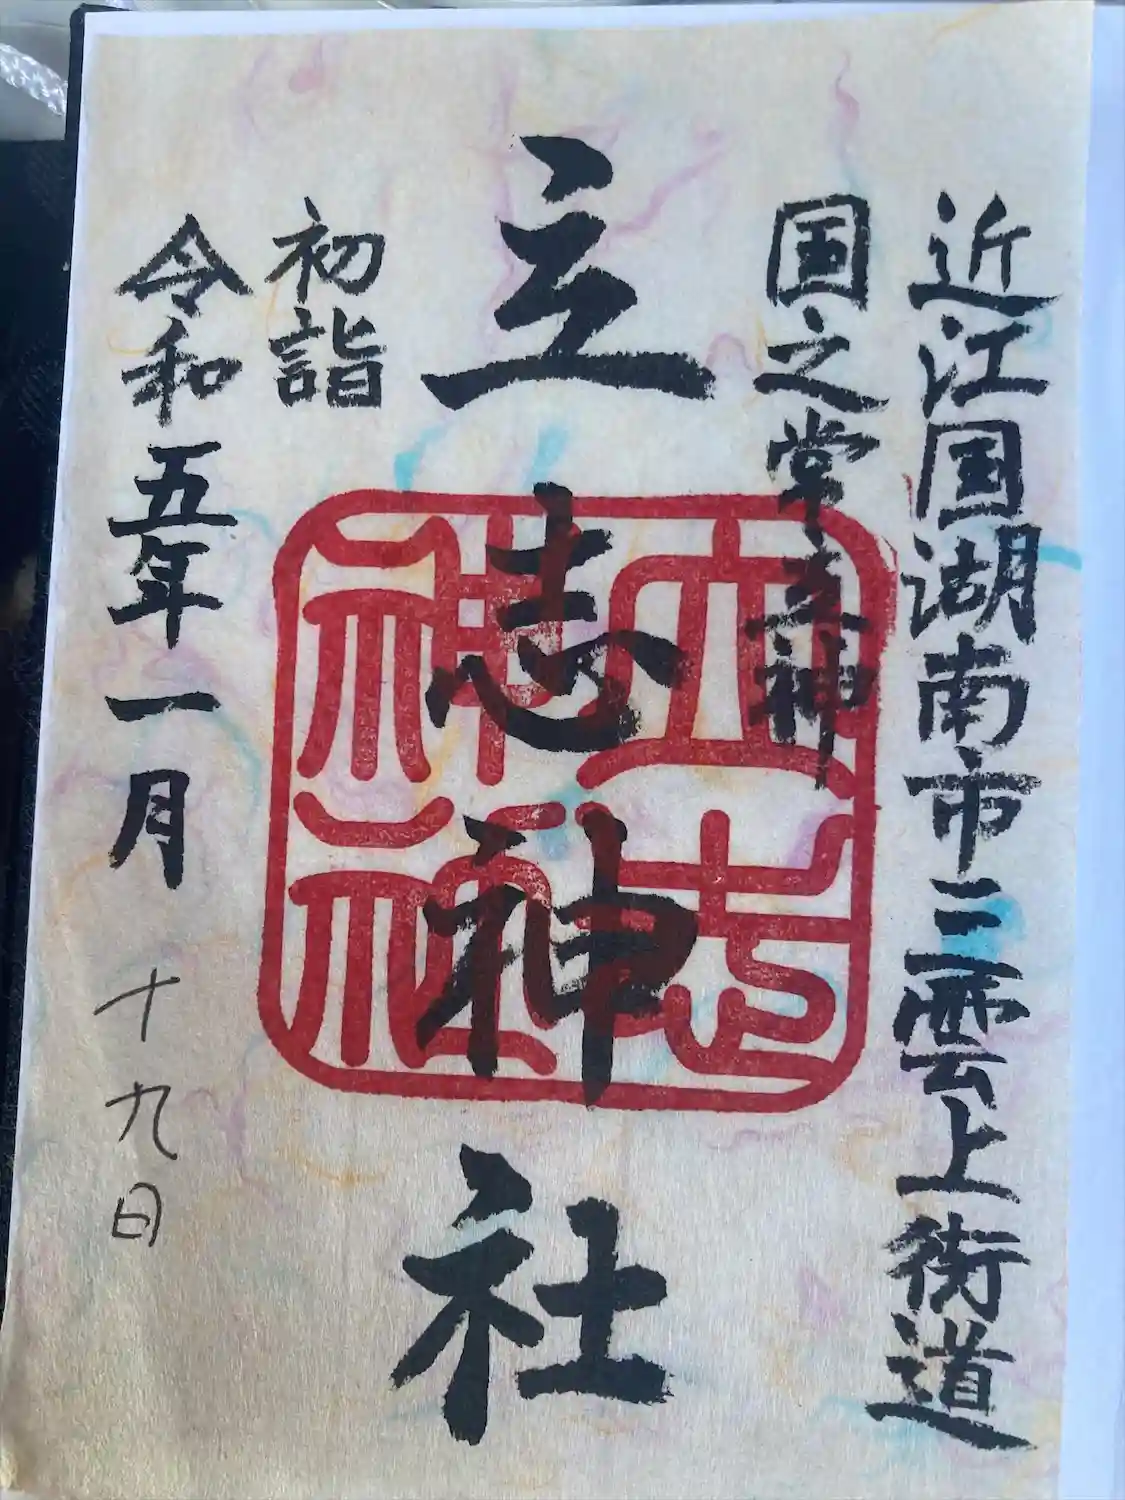 近江国湖南市三雲上街道
国之常立神
立志神社
立志神社
初詣
令和五年一月十九日